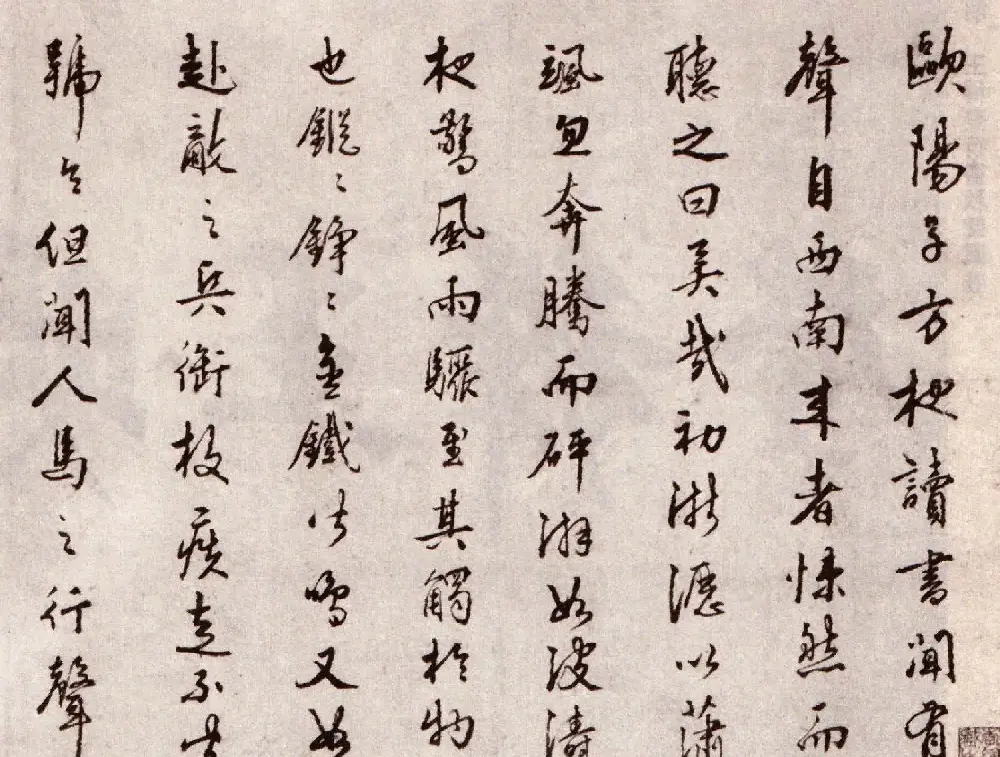 歐陽子方夜讀書聞有
聲自西南來者悚然而
聽之曰異哉初淅瀝以蕭
颯忽奔騰而砰湃如波濤
夜驚風雨驟至其觸於物
也鏦〻錚〻金鐵皆鳴又如
赴敵之兵銜枚疾走不
號令但聞人馬之行聲